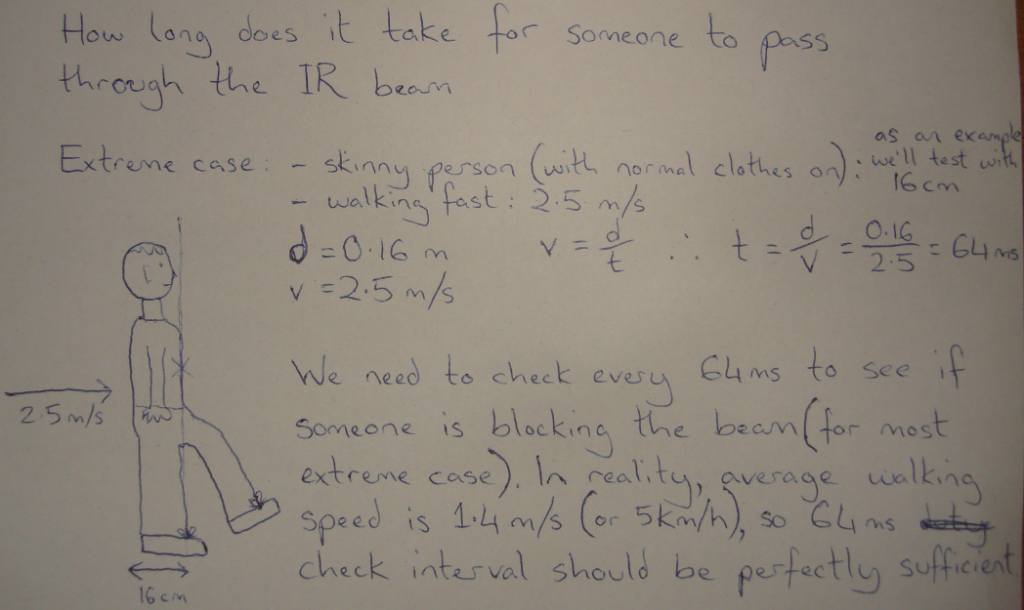 How long does it take for someone to pass
through the IR beam
as an example
Extreme case: - skinny person (with normal clothes on): we'll test with
16cm
- walking fast: 2.5 m/s
d = 0.16 m v = d/t ∴ t = d/v = 0.16/2.5 = 64ms
v = 2.5 m/s
We need to check every 64ms to see if
2.5m/s
someone is blocking the beam (for most
extreme case). In reality, average walking
speed is 1.4 m/s (or 5km/h), so 64ms
check interval should be perfectly sufficient
16cm